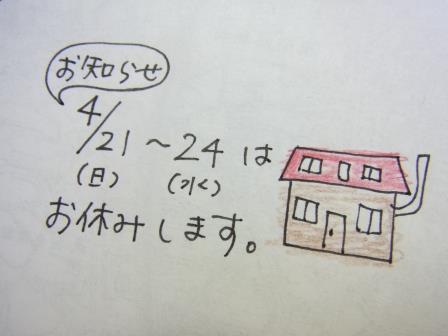 お知らせ
4/21～24は
(日) (水)
お休みします。